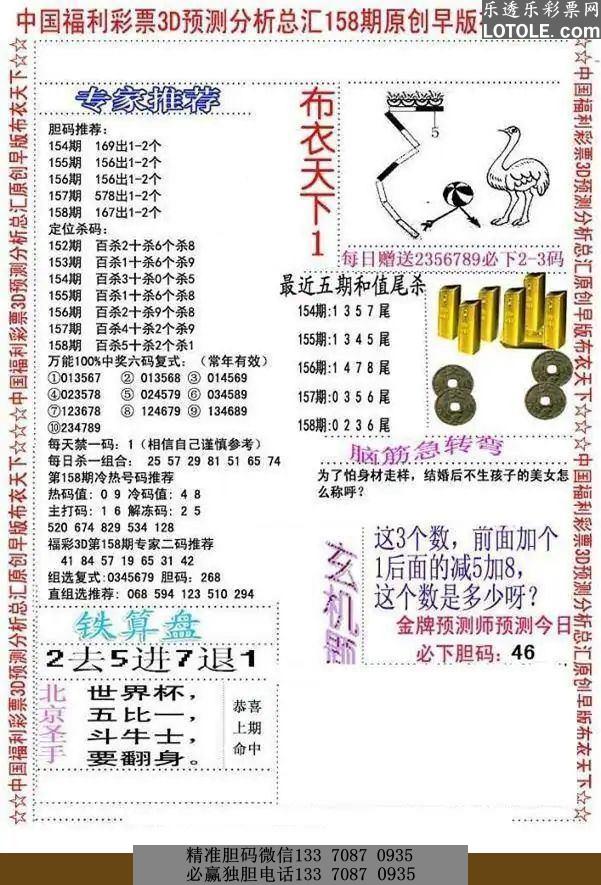 中国福利彩票3D预测分析总汇158期原创早版
乐透乐彩票网
LOTOLE.COM
☆☆中国福利彩票3D预测分析总汇原创早版布衣天下☆☆中国福利彩票3D预测分析总汇原创早版布衣天下☆
专家推荐
胆码推荐:
154期 169出1-2个
155期 156出1-2个
156期 156出1-2个
157期 578出1-2个
158期 167出1-2个
定位杀码:
152期 百杀2十杀6个杀8
153期 百杀1十杀6个杀9
154期 百杀3十杀0个杀5
155期 百杀1十杀6个杀8
156期 百杀2十杀6个杀9
157期 百杀4十杀2个杀9
158期 百杀5十杀2个杀1
万能100%中奖六码复式:(常年有效)
①013567 ②013568 ③014569
④023578 ⑤024579 ⑥034589
⑦123678 ⑧124679 ⑨134689
⑩234789
每天禁一码:1(相信自己谨慎参考)
每日杀一组合: 25 57 29 81 51 65 74
第158期冷热号码推荐
热码值:0 9 冷码值:4 8
主打码:1 6 解冻码:2 5
520 674 829 534 128
福彩3D第158期专家二码推荐
41 84 57 19 65 31 42
组选复式:0345679 胆码:268
直组选推荐:068 594 123 510 294
铁算盘
2去5进7退1
北京圣手
世界杯,
五比一,
斗牛士,
要翻身。
恭喜
上期
命中
布衣天下1
5
每日赠送2356789必下2-3码
最近五期和值尾杀
154期:1 3 5 7 尾
155期:1 3 4 5 尾
156期:1 4 7 8 尾
157期:0 3 5 6 尾
158期:0 2 3 6 尾
脑筋急转弯
为了怕身材走样,结婚后不生孩子的美女怎
么称呼?
玄机题
这3个数,前面加个
1后面的减5加8,
这个数是多少呀?
金牌预测师预测今日
必下胆码:46
☆☆中国福利彩票3D预测分析总汇原创早版布衣天下☆☆中国福利彩票3D预测分析总汇原创早版布衣天下☆☆
精准胆码微信133 7087 0935
必赢独胆电话133 7087 0935